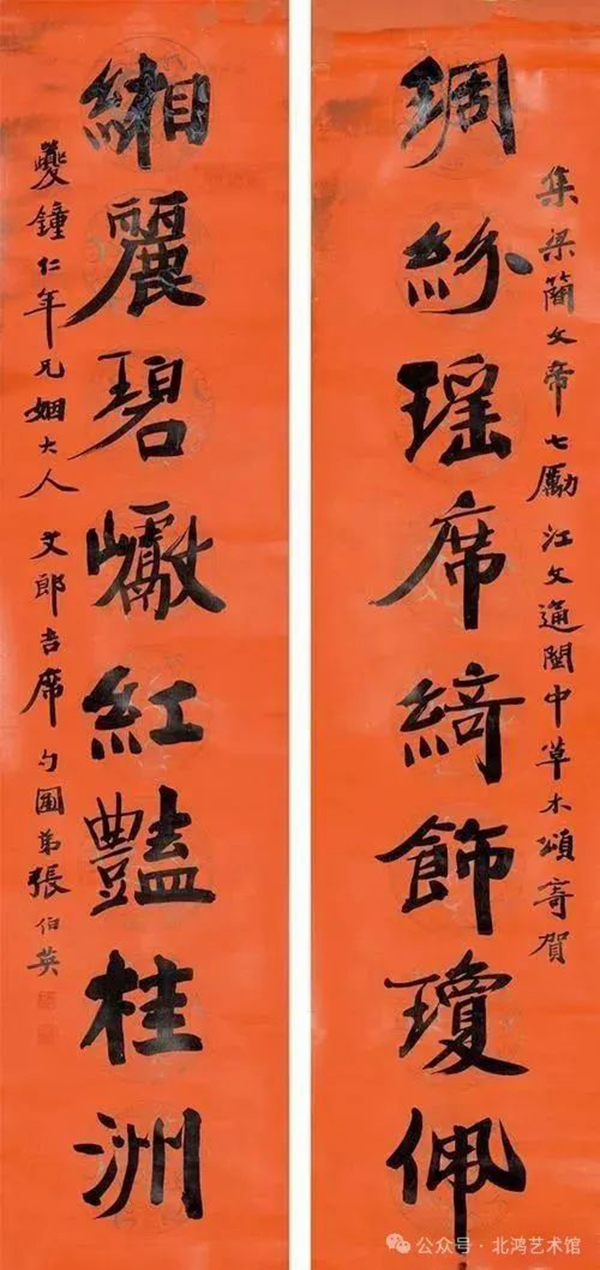 集梁簡文帝七勵江文通閩中草木頌寄賀
紛瑤席綺飾瓊佩
緗麗碧巘紅豔桂洲
夔鐘仁年兄姻大人 文郎吉席 勺圃弟張伯英
公众号·北鸿艺术馆